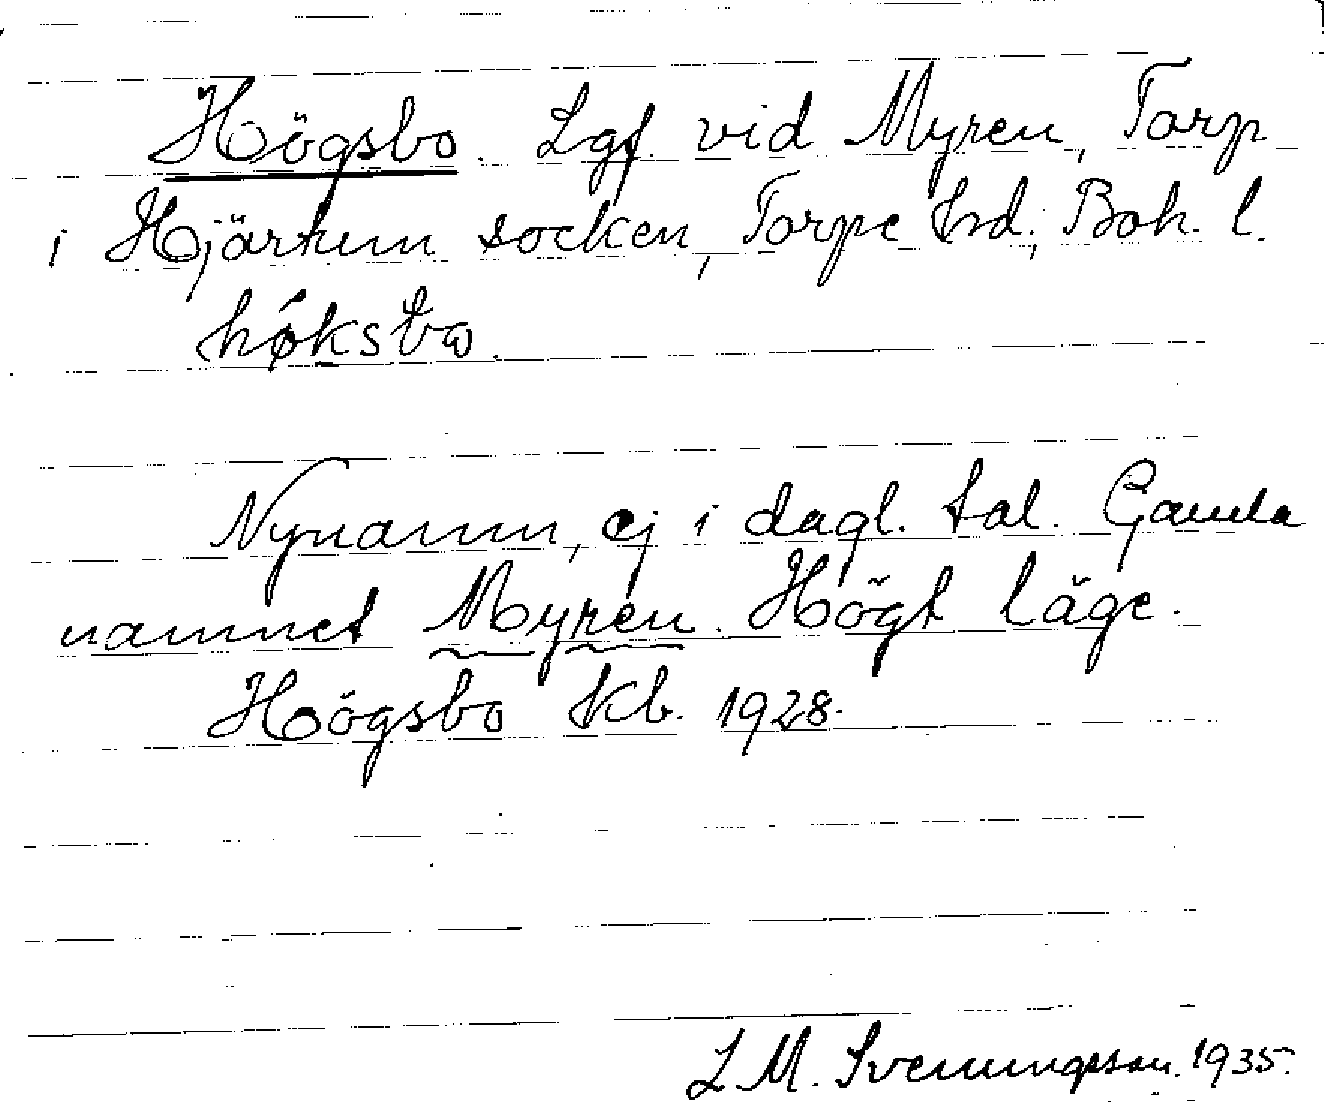 Högsbo. Lgf. vid Myren, Torp
i Hjärtum socken, Torpe hd; Boh. l.
høksbɷ.
Nynamn, ej i dagl. tal. Gamla
namnet Myren. Högt läge.
Högsbo Kb. 1928.
L M. Svenungsson. 1935.